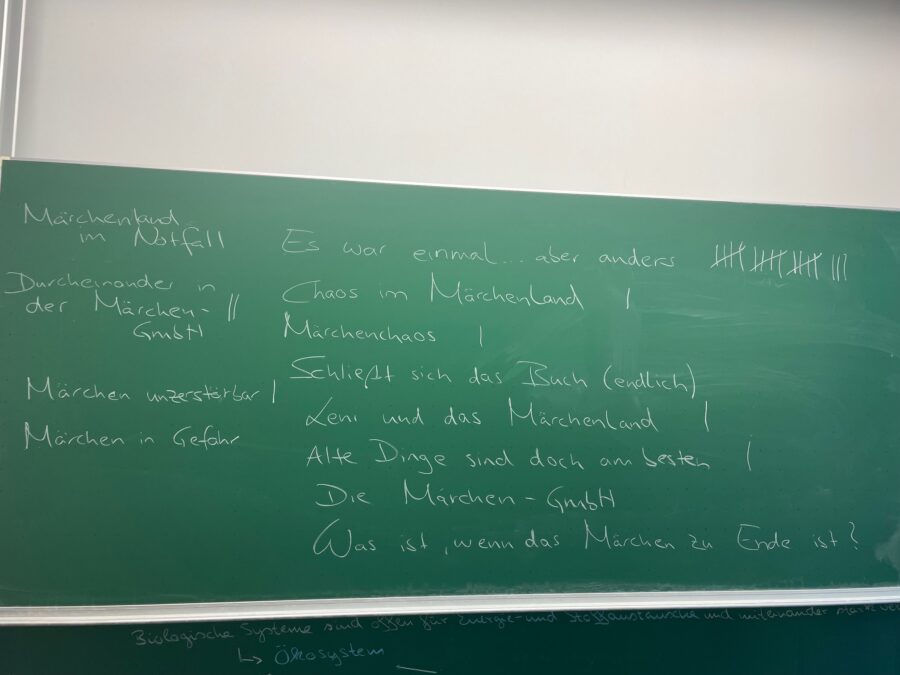 Märchenland
im Notfall
Durcheinander in
der Märchen- ||
GmbH
Märchen unzerstörbar |
Märchen in Gefahr
Es war einmal... aber anders |||| |||| |||| |||
Chaos im Märchenland |
Märchenchaos |
Schließt sich das Buch (endlich)
Leni und das Märchenland |
Alte Dinge sind doch am besten |
Die Märchen-GmbH
Was ist, wenn das Märchen zu Ende ist?
Biologische Systeme sind offen für Energie- und Stoffaustausche und miteinander
↳ Ökosystem